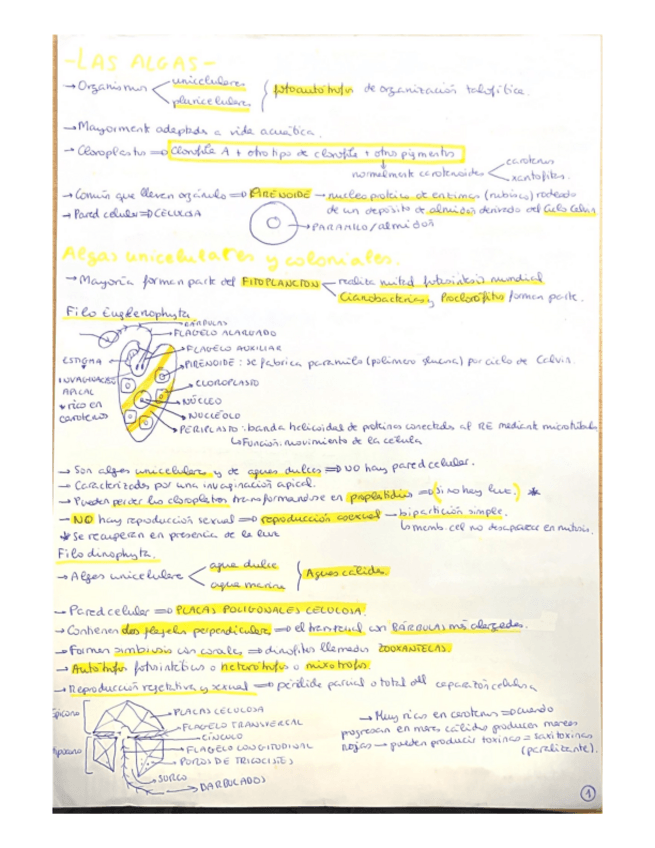 -LAS ALGAS-
→ Organismos unicelulares fotoautótrofos de organización talofítica.
pluricelulares
→ Mayormente adaptada a vida acuática.
→ Cloroplastos ⇒ Clorofila A + otro tipo de clorofila + otros pigmentos
normalmente carotenoides carotenos
xantofilas.
→ Común que lleven orgánulo ⇒ PIRENOIDE → núcleo proteico de enzimas (rubisco) rodeado
de un depósito de almidón derivado del Ciclo Calvin.
→ Pared celular ⇒ CELULOSA
→ PARAMILO/almidón
Algas unicelulares y coloniales.
→ Mayoría forman parte del FITOPLANCTON realiza mitad fotosíntesis mundial
Cianobacterias y Proclorófitas forman parte.
Filo Euglenophyta
BÁRBULAS
FLAGELO ALARGADO
FLAGELO AUXILIAR
ESTIGMA
PIRENOIDE: se fabrica paramilo (polímero glucosa) por ciclo de Calvin
INVAGINACIÓN APICAL
CLOROPLASTO
* rico en carotenos
NÚCLEO
NUCLÉOLO
PERIPLASTO: banda helicoidal de proteínas conectadas al RE mediante microtúbulos
↳ Función: movimiento de la célula
→ Son algas unicelulares y de aguas dulces ⇒ NO hay pared celular.
→ Caracterizadas por una invaginación apical.
→ Pueden perder los cloroplastos transformándose en proplastidios ⇒ (si no hay luz.) *
→ NO hay reproducción sexual ⇒ reproducción asexual → bipartición simple.
↳ memb. cel no desaparece en mitosis.
* Se recuperan en presencia de la luz
Filo dinophyta.
→ Algas unicelulares agua dulce Aguas cálidas.
agua marina
→ Pared celular ⇒ PLACAS POLIGONALES CELULOSA.
→ Contienen dos flagelos perpendiculares ⇒ el transversal con BÁRBULAS más alargadas.
→ Forman simbiosis con corales ⇒ dinofitas llamadas ZOOXANTELAS.
→ Autótrofas fotosintéticas o heterótrofas o mixotrofas.
→ Reproducción vegetativa y sexual ⇒ pérdida parcial o total del caparazón celulosa
Epicono
PLACAS CELULOSA
FLAGELO TRANSVERSAL
CÍNCULO
Hipocono
FLAGELO LONGITUDINAL
POROS DE TRICOCISTES
SURCO
BARBULADOS
→ Muy ricos en carotenos ⇒ cuando
progresan en mares cálidos producen mareas
rojas → pueden producir toxinas = saxitoxinas
(paralizante).
1